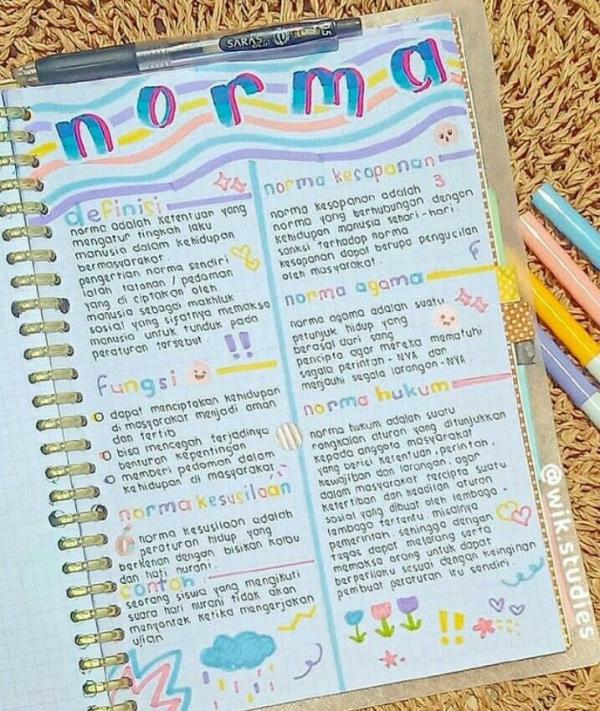 SARASA
0.5
norma
definisi
norma adalah ketentuan yang
mengatur tingkah laku
manusia dalam kehidupan
bermasyarakat.
pengertian norma sendiri
ialah tatanan / pedoman
yang di ciptakan oleh
manusia sebagai makhluk
sosial yang sifatnya memaksa
manusia untuk tunduk pada
peraturan tersebut
!!
fungsi
dapat menciptakan kehidupan
di masyarakat menjadi aman
dan tertib
bisa mencegah terjadinya
benturan kepentingan
memberi pedoman dalam
kehidupan di masyarakat
norma kesusilaan
norma kesusilaan adalah
peraturan hidup yang
berkenan dengan bisikan kalbu
dan hati nurani.
contoh
seorang siswa yang mengikuti
suara hati nurani tidak akan
menyontek ketika mengerjakan
ujian
norma kesopanan
norma kesopanan adalah
norma yang berhubungan dengan
kehidupan manusia sehari-hari.
sanksi terhadap norma
kesopanan dapat berupa pengucilan
oleh masyarakat.
norma agama
norma agama adalah suatu
petunjuk hidup yang
berasal dari sang
pencipta agar mereka mematuhi
segala perintah-NYA dan
menjauhi segala larangan-NYA.
norma hukum
norma hukum adalah suatu
rangkaian aturan yang ditunjukkan
kepada anggota masyarakat
yang berisi ketentuan, perintah,
kewajiban dan larangan, agar
dalam masyarakat tercipta suatu
ketertiban dan keadilan aturan
sosial yang dibuat oleh lembaga-
lembaga tertentu, misalnya
pemerintah, sehingga dengan
tegas dapat melarang serta
memaksa orang untuk dapat
berperilaku sesuai dengan keinginan
pembuat peraturan itu sendiri.
!!
@wik.studies